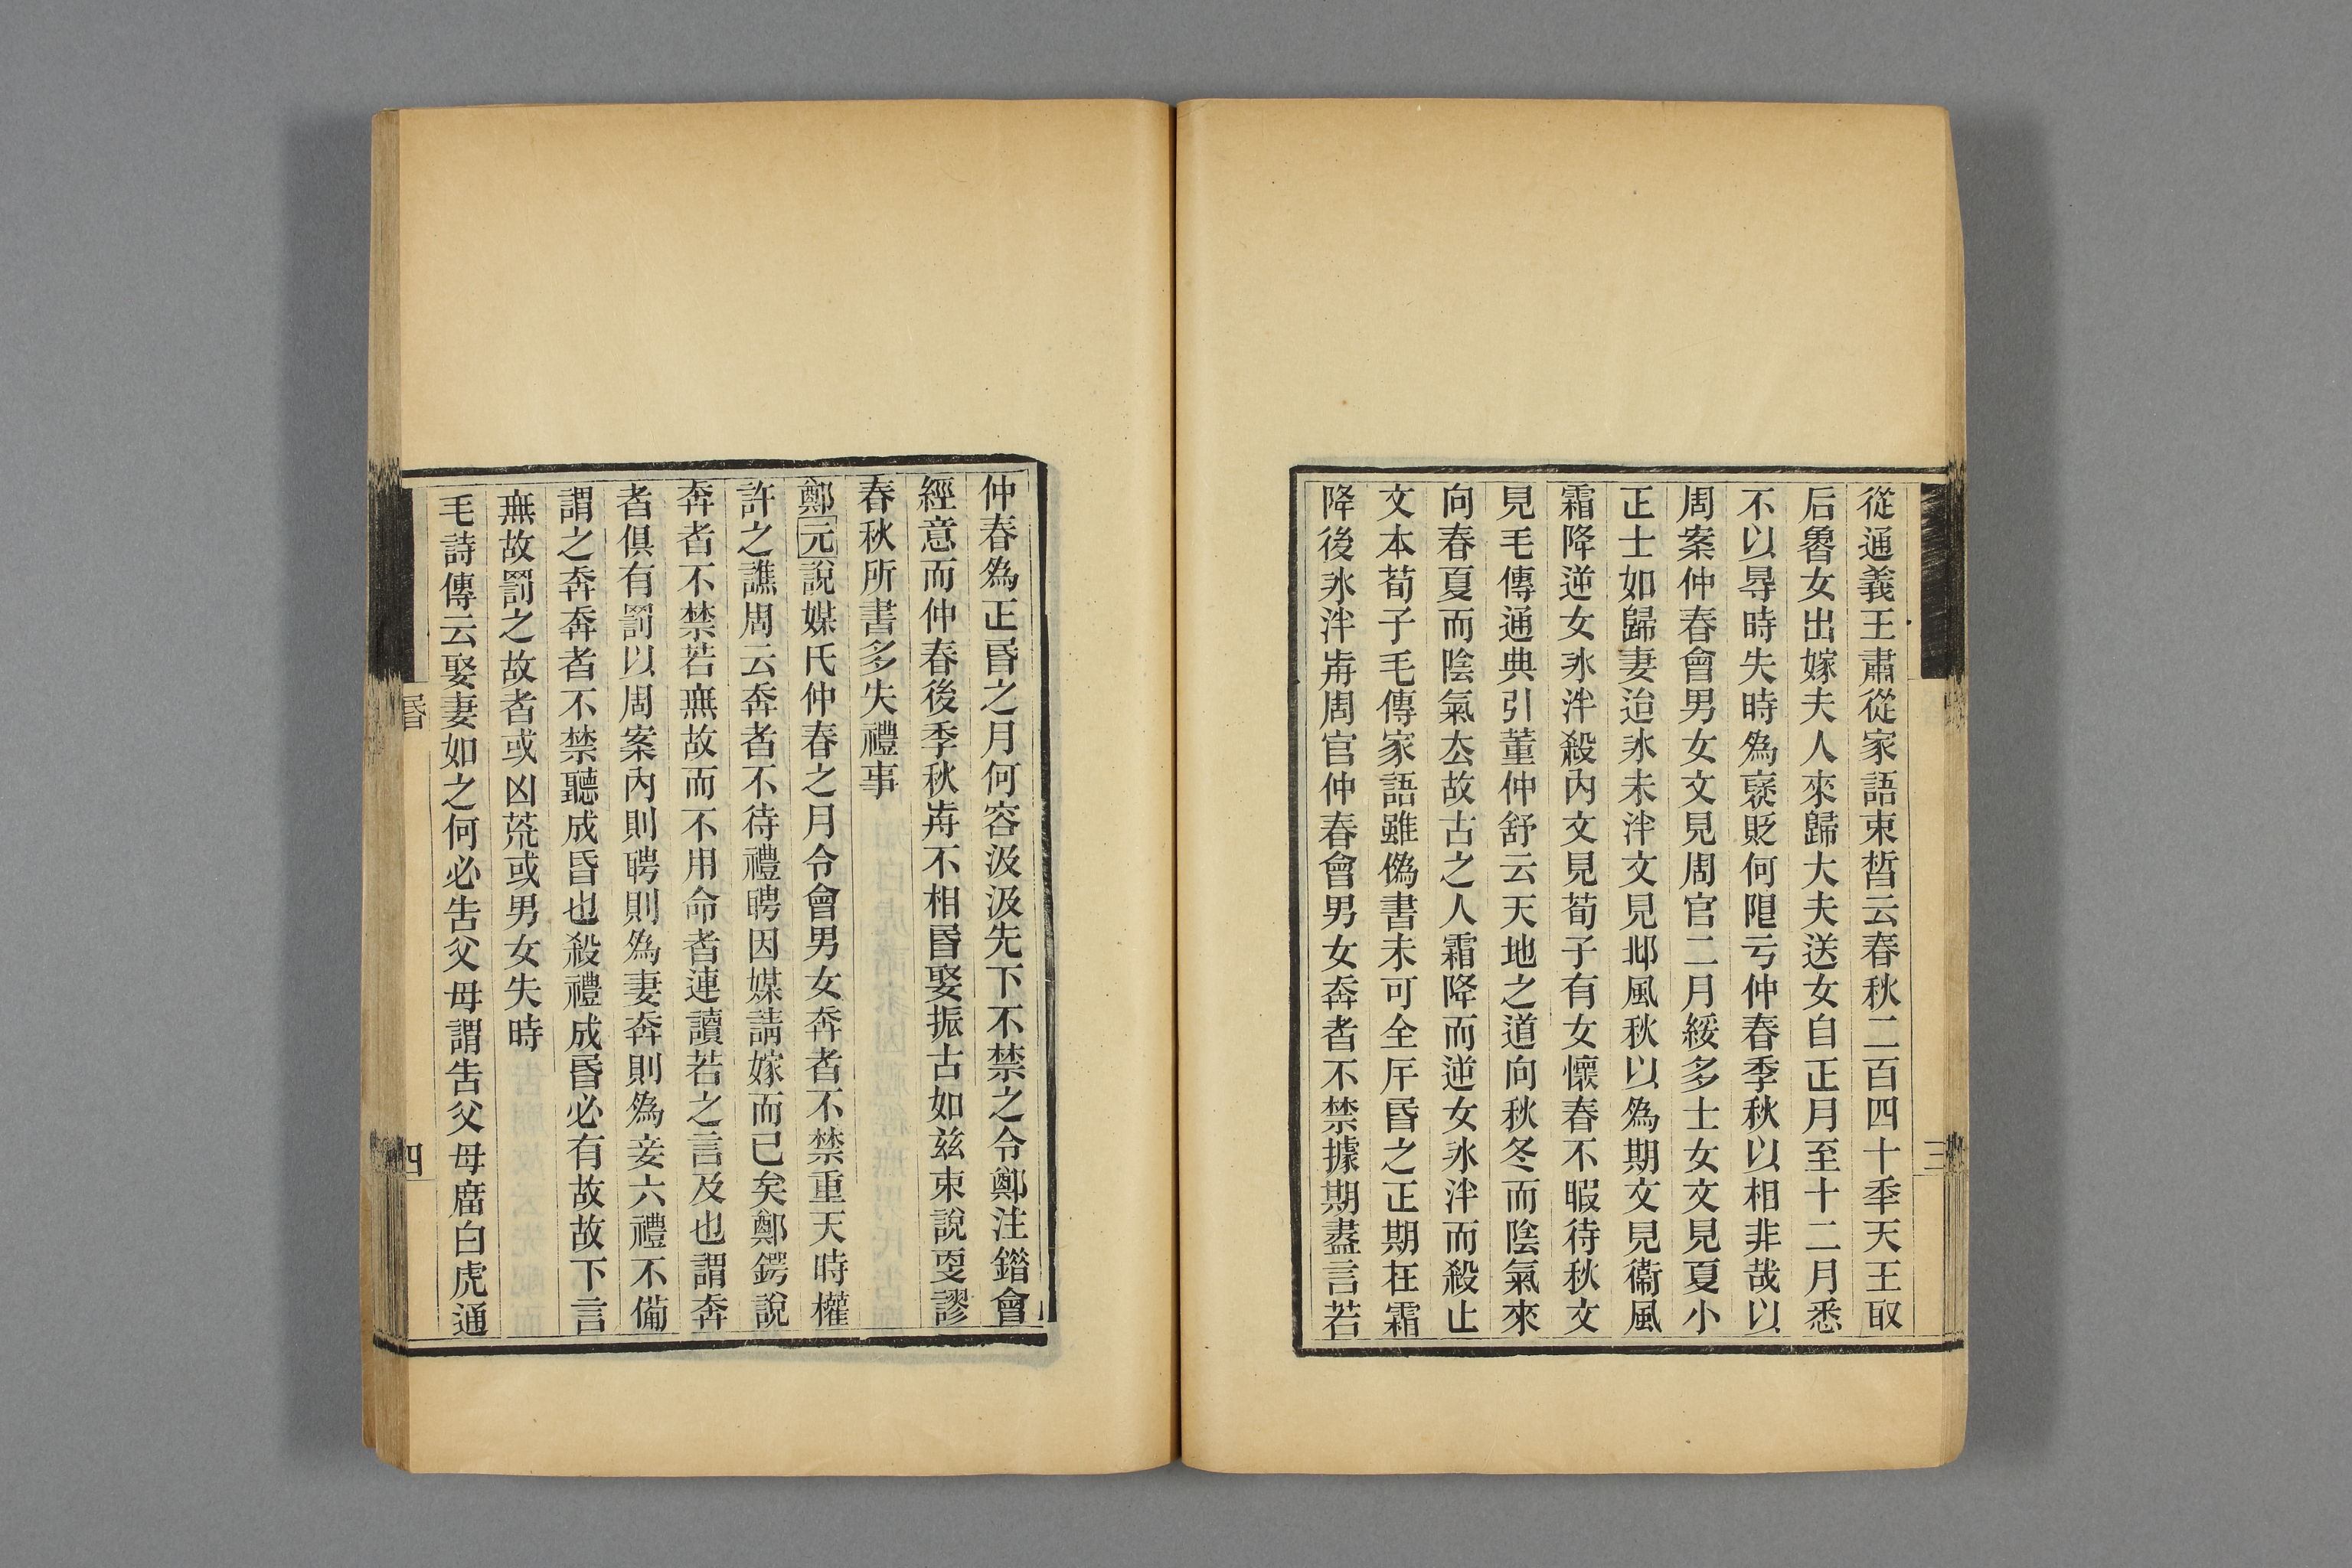 從通義王肅從家語束晳云春秋二百四十秊天王取
后魯女出嫁夫人來歸大夫送女自正月至十二月悉
不以㝵時失時爲襃貶何限亏仲春季秋以相非哉以
周案仲春會男女文見周官二月綏多士女文見夏小
正士如歸妻迨氷未泮文見邶風秋以爲期文見衞風
霜降逆女氷泮殺內文見荀子有女懷春不暇待秋文
見毛傳通典引董仲舒云天地之道向秋冬而陰氣來
向春夏而陰氣厺故古之人霜降而逆女氷泮而殺止
文本荀子毛傳家語雖僞書未可全斥昏之正期在霜
降後氷泮歬周官仲春會男女奔者不禁據期盡言若
三
仲春爲正昏之月何容汲汲先下不禁之令鄭注鍇會
經意而仲春後季秋歬不相昏娶振古如兹束說㪅謬
春秋所書多失禮事
鄭元說媒氏仲春之月令會男女奔者不禁重天時權
許之譙周云奔者不待禮聘因媒請嫁而已矣鄭鍔說
奔者不禁若無故而不用命者連讀若之言及也謂奔
者俱有罰以周案內則聘則爲妻奔則爲妾六禮不備
謂之奔奔者不禁聽成昏也殺禮成昏必有故故下言
無故罰之故者或凶荒或男女失時
毛詩傳云娶妻如之何必告父母謂告父母庿白虎通
昏
四